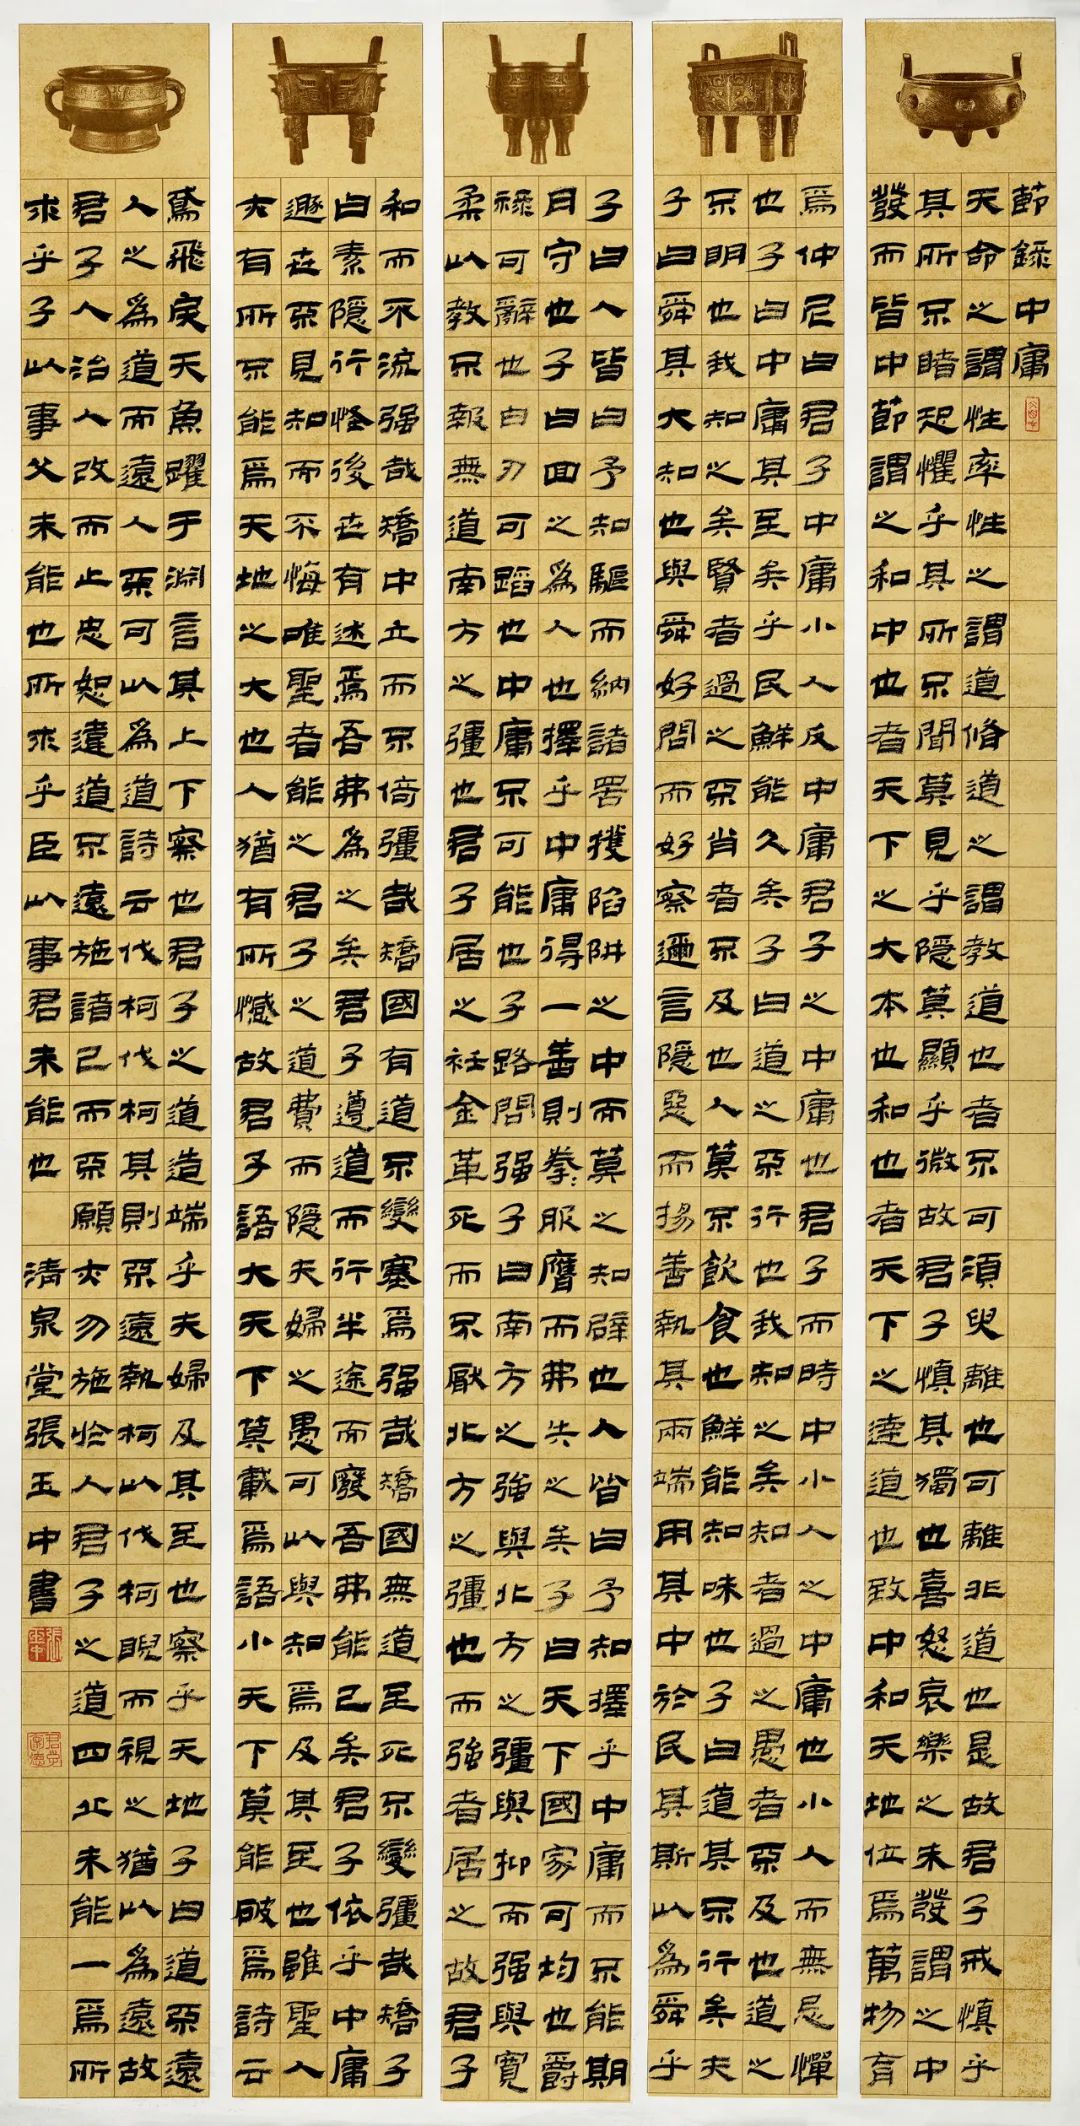 節錄中庸
天命之謂性率性之謂道脩道之謂教道也者不可須臾離也可離非道也是故君子戒慎乎
其所不睹恐懼乎其所不聞莫見乎隱莫顯乎微故君子慎其獨也喜怒哀樂之未發謂之中
發而皆中節謂之和中也者天下之大本也和也者天下之達道也致中和天地位焉萬物育
焉仲尼曰君子中庸小人反中庸君子之中庸也君子而時中小人之中庸也小人而無忌憚
也子曰中庸其至矣乎民鮮能久矣子曰道之不行也我知之矣知者過之愚者不及也道之
不明也我知之矣賢者過之不肖者不及也人莫不飲食也鮮能知味也子曰道其不行矣夫
子曰舜其大知也與舜好問而好察邇言隱惡而揚善執其兩端用其中於民其斯以為舜乎
子曰人皆曰予知驅而納諸罟擭陷阱之中而莫之知辟也人皆曰予知擇乎中庸而不能期
月守也子曰回之為人也擇乎中庸得一善則拳〻服膺而弗失之矣子曰天下國家可均也爵
祿可辭也白刃可蹈也中庸不可能也子路問强子曰南方之强與北方之彊與抑而强與寬
柔以教不報無道南方之彊也君子居之衽金革死而不厭北方之彊也而强者居之故君子
和而不流强哉矯中立而不倚彊哉矯國有道不變塞焉强哉矯國無道至死不變彊哉矯子
曰素隱行怪後世有述焉吾弗為之矣君子遵道而行半途而廢吾弗能已矣君子依乎中庸
遯世不見知而不悔唯聖者能之君子之道費而隱夫婦之愚可以與知焉及其至也雖聖人
亦有所不能焉天地之大也人猶有所憾故君子語大天下莫載焉語小天下莫能破焉詩云
鳶飛戾天魚躍于淵言其上下察也君子之道造端乎夫婦及其至也察乎天地子曰道不遠
人之為道而遠人不可以為道詩云伐柯伐柯其則不遠執柯以伐柯睨而視之猶以為遠故
君子人治人改而止忠恕違道不遠施諸己而不願亦勿施於人君子之道四丘未能一焉所
求乎子以事父未能也所求乎臣以事君未能也 清泉堂張玉中書